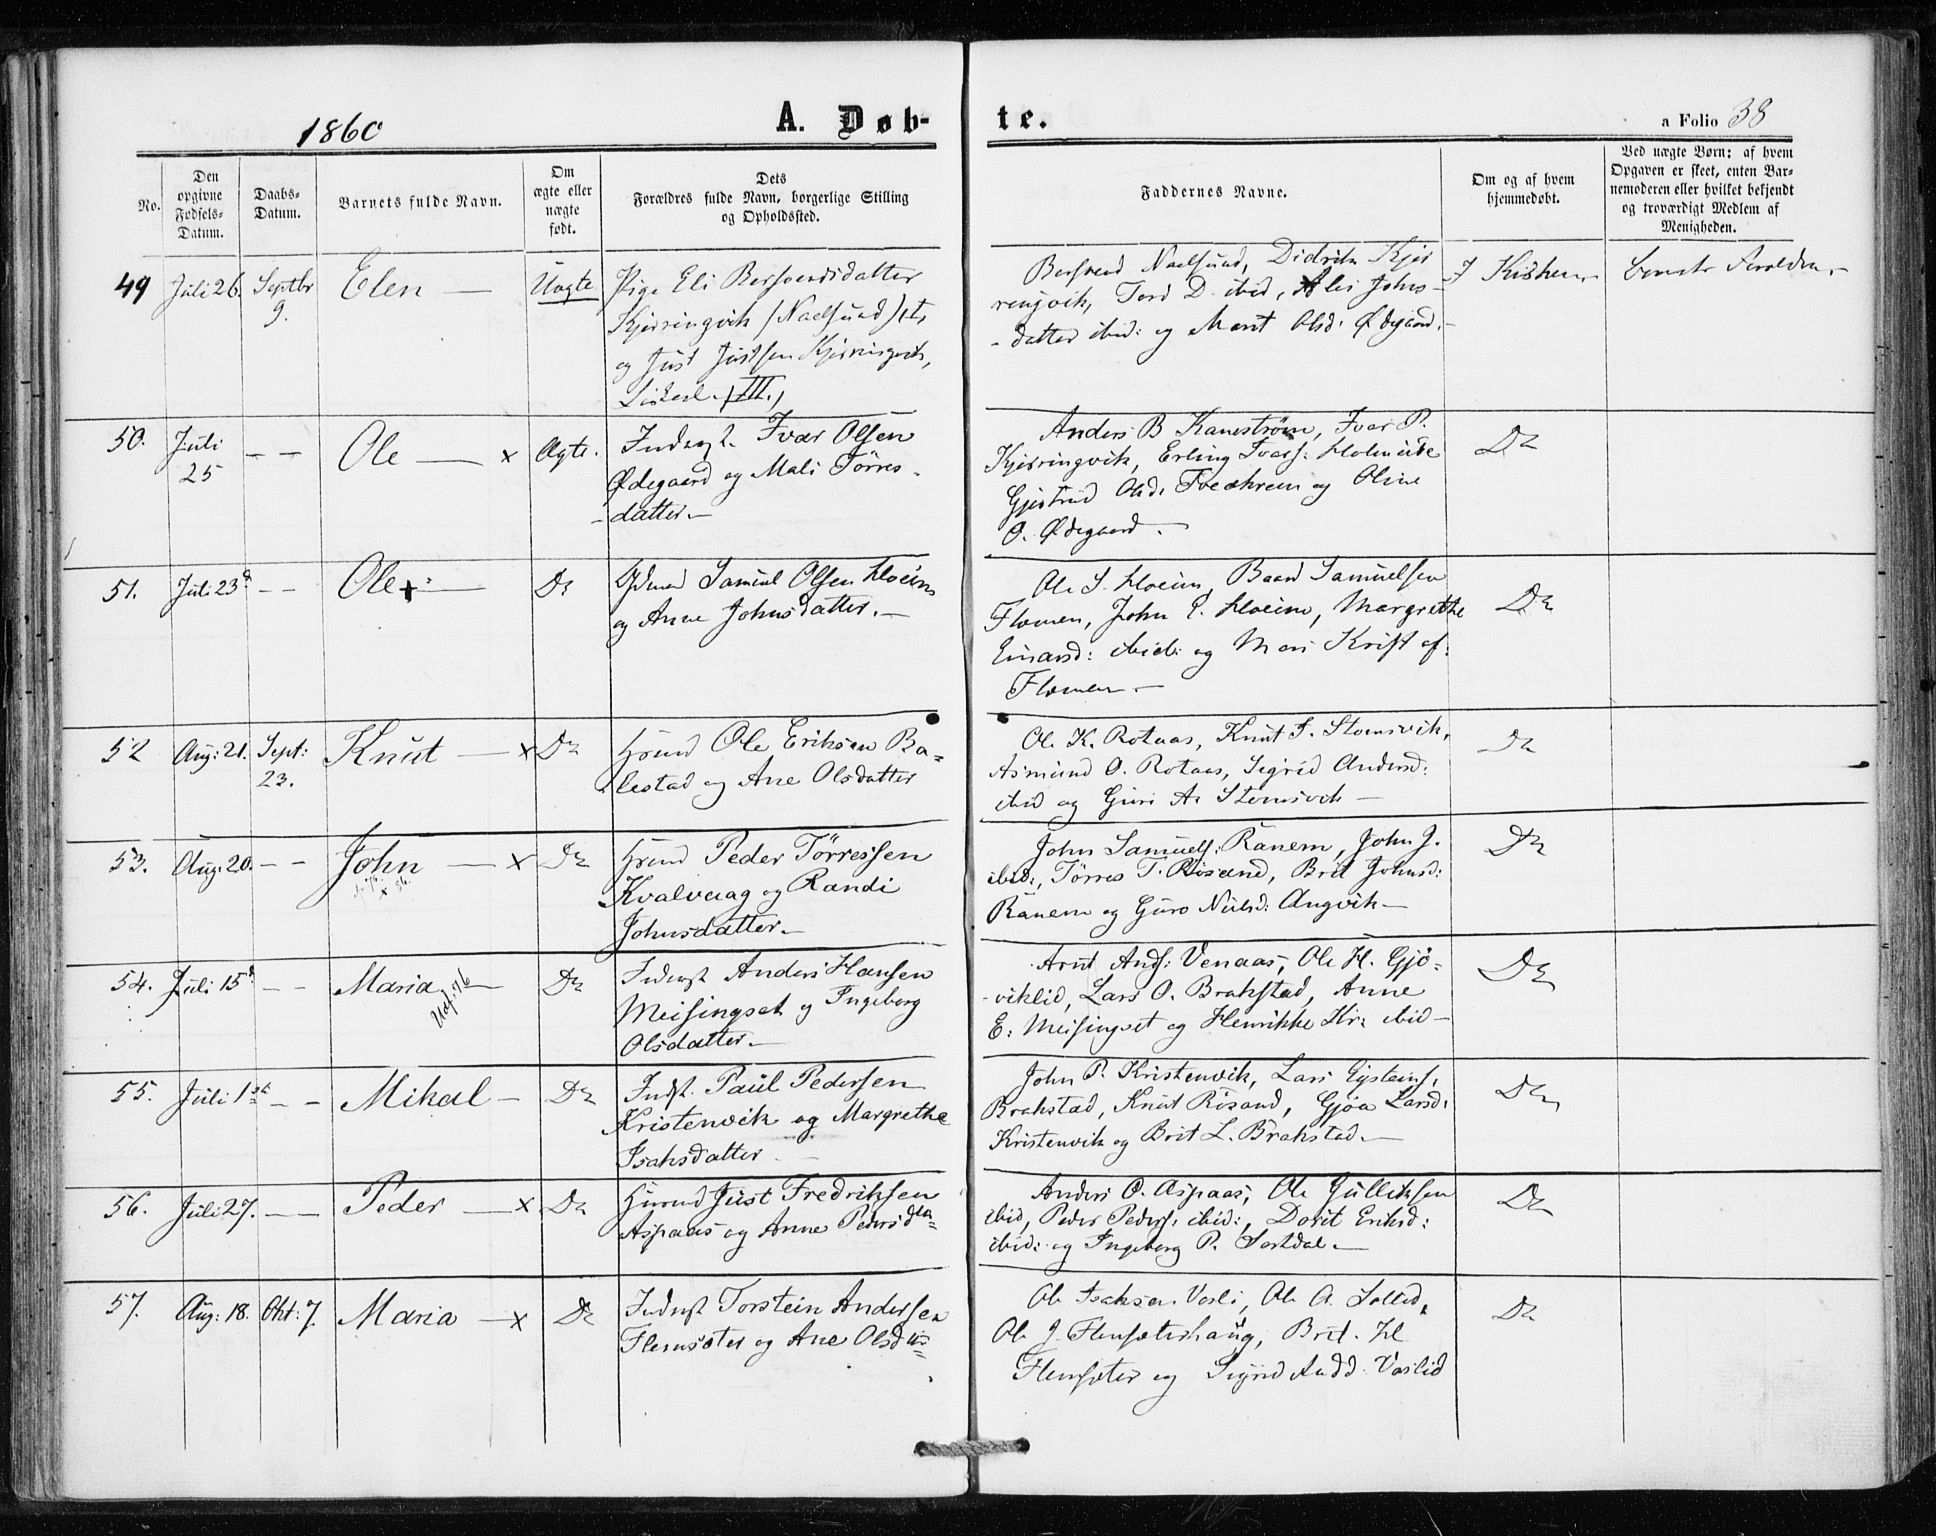 1860
A. Døb-
te.
a Folio 38
No.
Den
opgivne
Fødsels-
Datum.
Daabs-
Datum.
Barnets fulde Navn.
Om
ægte eller
uægte
født.
Dets
Forældres fulde Navn, borgerlige Stilling
og Opholdssted.
Faddernes Navne.
Om og af hvem
hjemmedøbt.
Ved uægte Børn: af hvem
Opgaven er skeet, enten Bar-
nemoderen eller hvilket bekjendt
og troværdigt Medlem af
Menigheden.
49 Juli 26. Septbr
9.
Elen —
Uægte
Pige Eli Bersvendsdatter
Kjørringvik (Naelsund)
og Just Justsen Kjørringvik,
(III.)
Bersvend Naelsund, Didrik Kjør
ringvik, Tord D. ibid, Johns-
datter ibid: og Marit Olsd: Ødegaard.—
I Kirken.—
50. Juli
25 — —
Ole — x
Ægte.
Inderst. Ivar Olsen
Ødegaard og Mali Tørres-
-datter.—
Anders B Kanestrøm, Ivar P.
Kjørringvik, Erling Ivars:
Gjertrud Olsd. og Oline
O. Ødegaard.—
Do
51. Juli 23d — —
Ole +: —
Do
Samuel Olsen Hoeim
og Anne Johnsdatter.—
Ole S. Hoeim, Baard Samuelsen
Flemmen, John E. Hoeim, Margrethe
Einarsd: ibid: og Mari Krist of:
Flemmen.—
Do
52 Aug: 21. Sept:
23.
Knut — x
Do
Hrmd Ole Eriksen Ba-
lestad og Ane Olsdatter
Ole K. Rotaas, Knut S. Stomsvik,
Asmund O. Rotaas, Sigrid Andersd:
ibid og Guri A. Stomsvik—
Do
53. Aug: 20. — —
John — x
Do
Hrmd Peder Tørressen
Kvalvaag og Randi
Johnsdatter.—
John Samuels: Ranem, John J.
ibid:, Tørres T. Risand, Brit Johnsd:
Ranem og Guro Nielsd: Angvik—
Do
54. Juli 15d — —
Maria —
Udf: 7/6
Do
Inderst Anders Hansen
Meisingset og Ingeborg
Olsdatter.—
Arnt Ands: Venaas, Ole H. Gjö-
-viklid, Lars O. Brakstad, Anne
E: Meisingset og Henrikke Hr: ibid—
Do
55. Juli 1ste — —
Mikal —
Do
Indst. Paul Pedersen
Kristenvik og Margrethe
Isaksdatter
John P. Kristenvik, Lars Eysteins,
Brakstad, Knut Risand, Gjøa Larsd:
Kristenvik og Brit L. Brakstad.—
Do
56. Juli 27. — —
Peder — x
Do
Just Fredriksen
Aspaas og Anne Pedersdtr
Anders O. Aspaas, Ole Gulliksen
ibid, Peder Peders: ibid:, Dorit Eriksd:
ibid: og Ingeborg P. —
Do
57. Aug: 18. Okt: 7.
Maria — x
Do
Inderst Torstein Andersen
Flemsæter og Ane Olsdtr
Ole Isaksen Vasli, Ole A.
Ole J. Flemsæterhaug, Brit.
Flemsæter og Sigrid Andd. Vaslid
Do